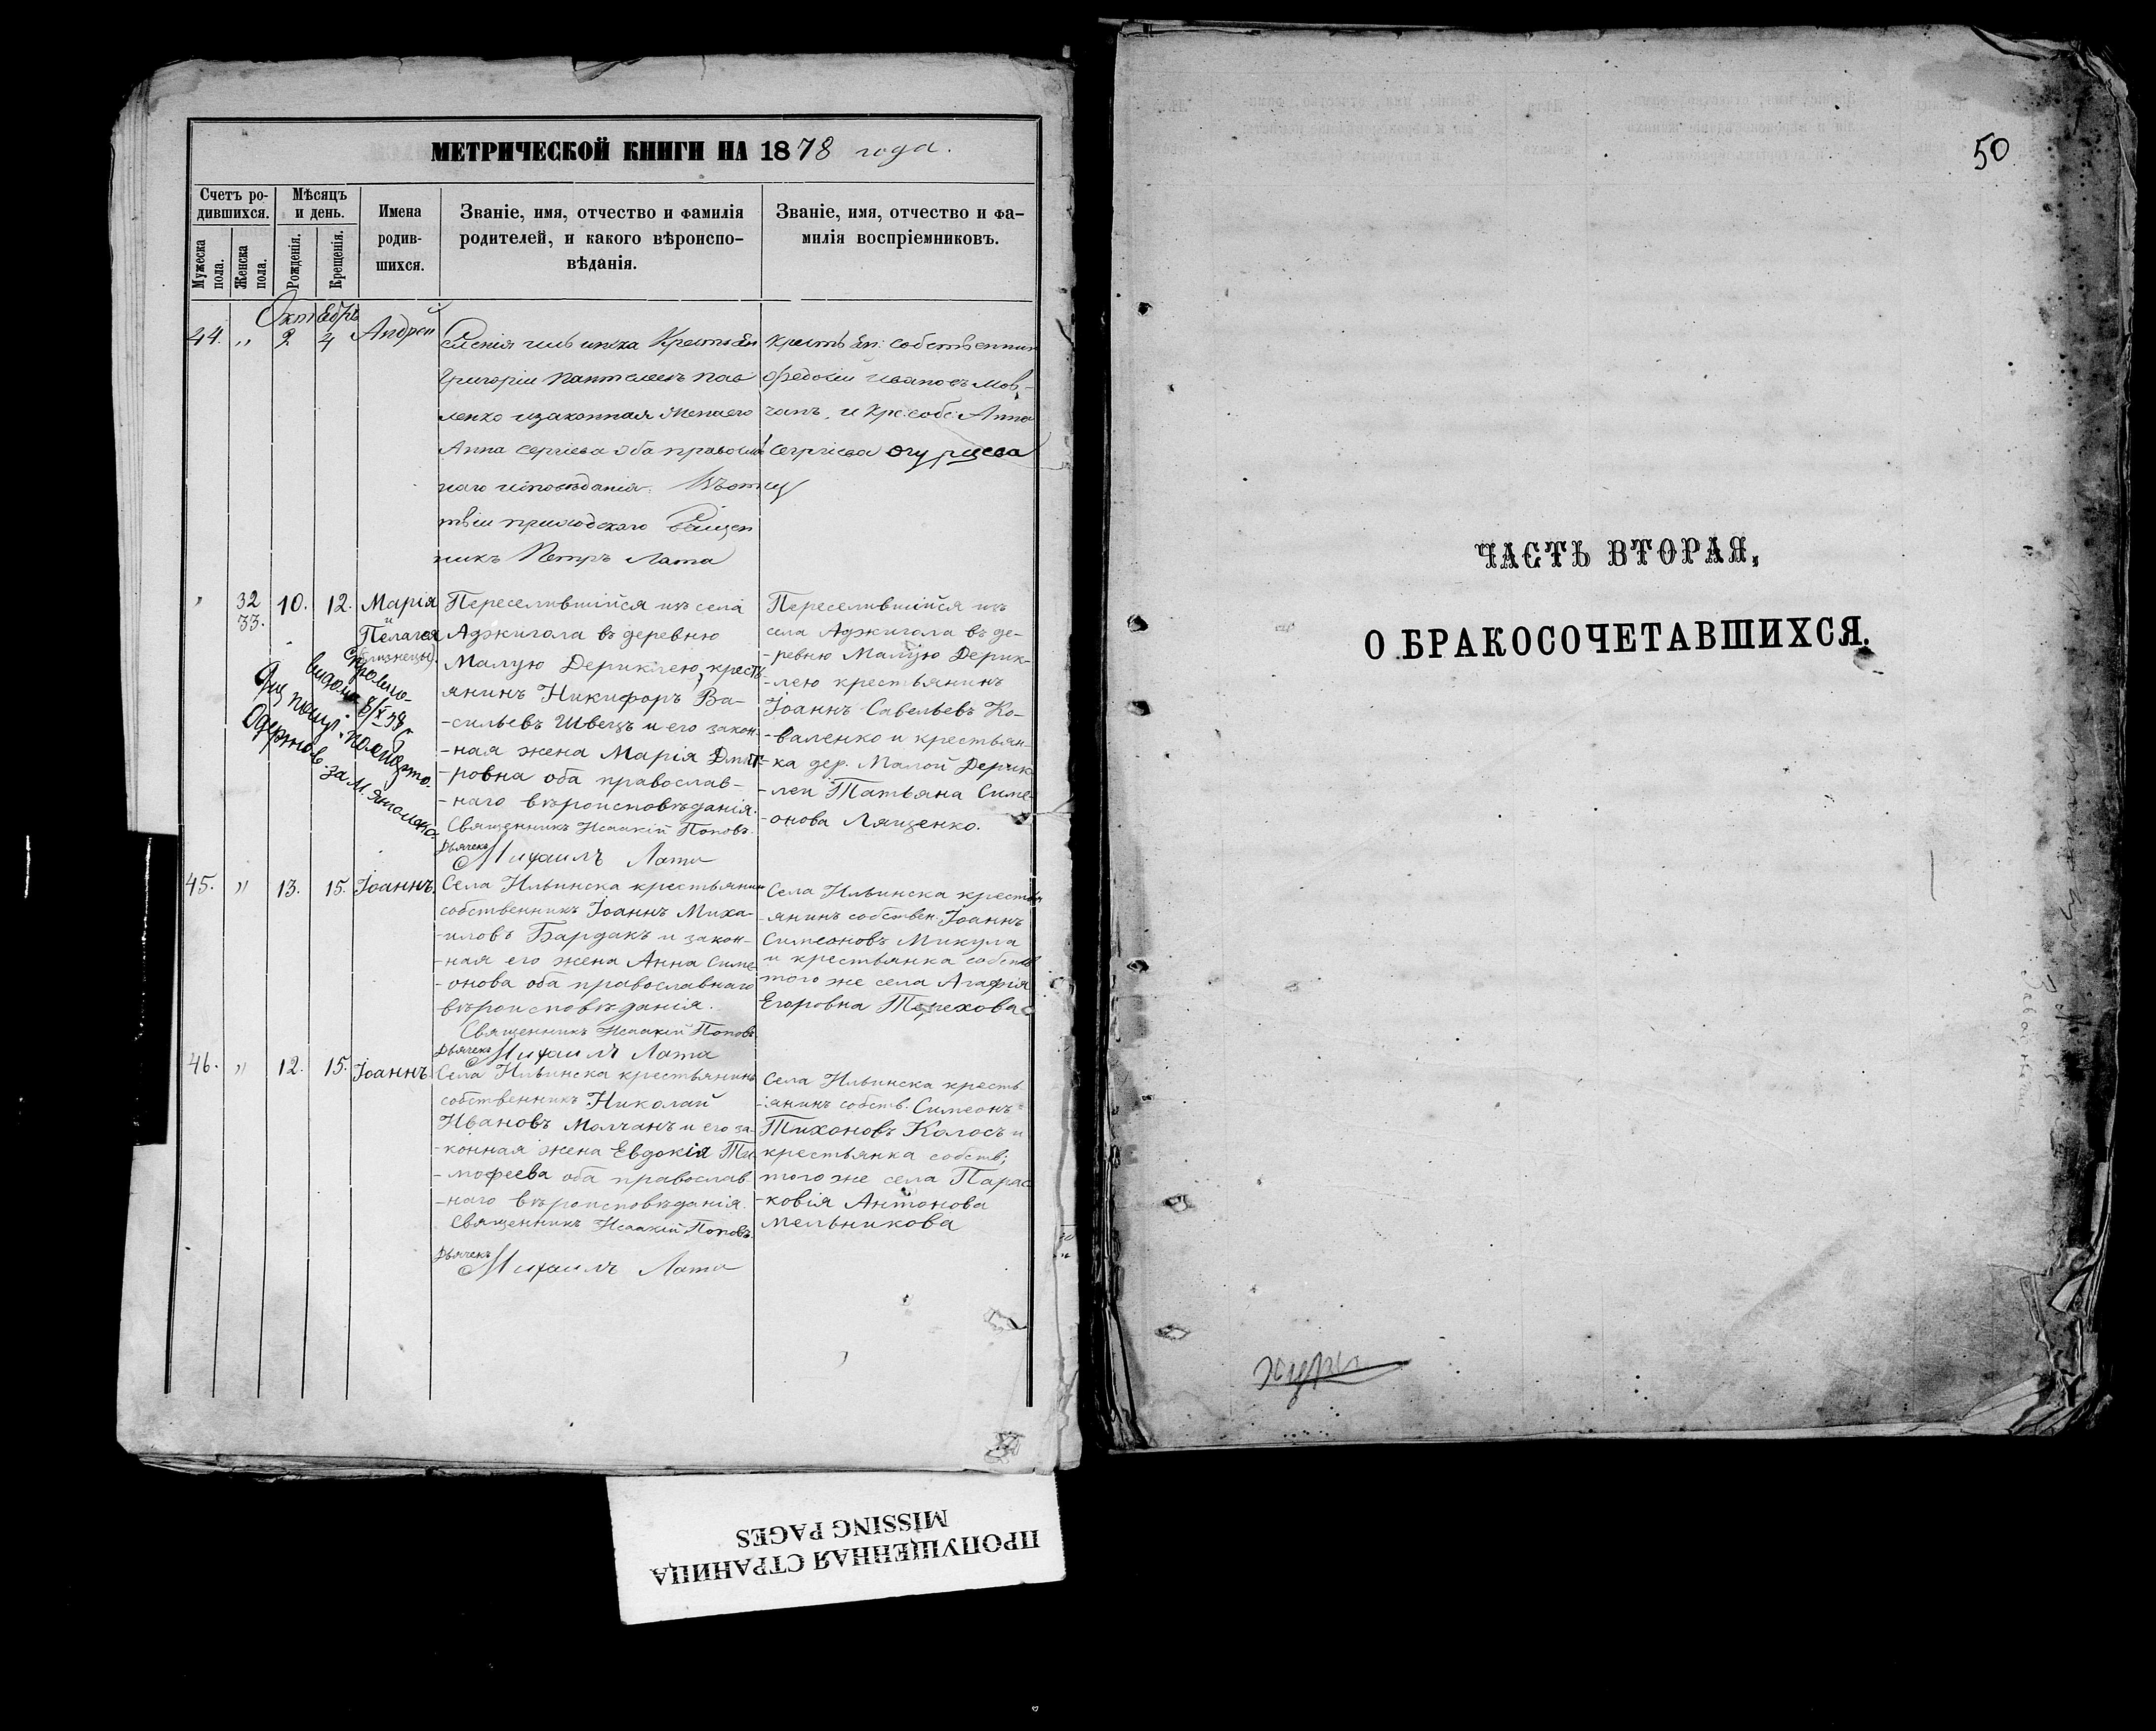 МЕТРИЧЕСКОЙ КНИГИ НА 1878 года.
Счетъ ро-
дившихся.
Мужеска пола.
Женска пола.
Мѣсяцъ
и день.
Рожденія.
Крещенія.
Имена
родив-
шихся.
Званіе, имя, отчество и фамилія
родителей, и какого вѣроиспо-
вѣданія.
Званіе, имя, отчество и фа-
милія воспріемниковъ.
44. " 2 4 Андрей
Григорій Пантелеевъ Пав
ленко и законная жена его
Анна Сергіева оба правосла
наго исповѣданія.
приходскаго Священ
никъ Петръ Лата
собственник
Федосій Ивановъ Мов-
чанъ, и Кре: собс: Анна
Сергіева Огурцева
32
33. 10. 12. Марія
и
Пелагея
(близнецы).
Переселившійся изъ села
Аджигола въ деревню
Малую Дериклею, кресть
янинъ Никифоръ Ва-
-сильевъ Швецъ и его закон-
-ная жена Марія Дмит-
-ровна оба православ-
-наго вѣроисповѣданія.
Священникъ Исаакій Поповъ.
Дьячекъ
Михаилъ Лата
Переселившійся изъ
села Аджигола въ де-
-ревню Малую Дерик-
-лею крестьянинъ
Іоаннъ Савельевъ Ко-
-валенко и крестьян-
-ка дер. Малой Дерик-
-леи Татьяна Симе-
-онова Лященко.
45. " 13. 15. Іоаннъ.
Села Ильинска крестьянин
собственникъ Іоаннъ Миха-
-иловъ Бардакъ и закон-
-ная его жена Анна Симе-
-онова оба православнаго
вѣроисповѣданія.
Священникъ Исаакій Поповъ.
Дьячекъ
Михаилъ Лата
Села Ильинска крестья
-янинъ собствен. Іоаннъ
Симеоновъ Микула
и крестьянка собств
того же села Агафія
Егоровна Терехова
46. " 12. 15. Іоаннъ.
Села Ильинска крестьянинъ
собственникъ Николай
Ивановъ Молчанъ и его за-
-конная жена Евдокія Ти
-мофеева оба православ
-наго вѣроисповѣданія.
Священникъ Исаакій Поповъ.
Дьячекъ
Михаилъ Лата
Села Ильинска кресть
-янинъ собств. Симеонъ
Тихоновъ Колосъ и
крестьянка собств;
того же села Парас
-ковія Антонова
Мельникова
50
ЧАСТЬ ВТОРАЯ,
О БРАКОСОЧЕТАВШИХСЯ.
ПРОПУЩЕННАЯ СТРАНИЦА
MISSING PAGES